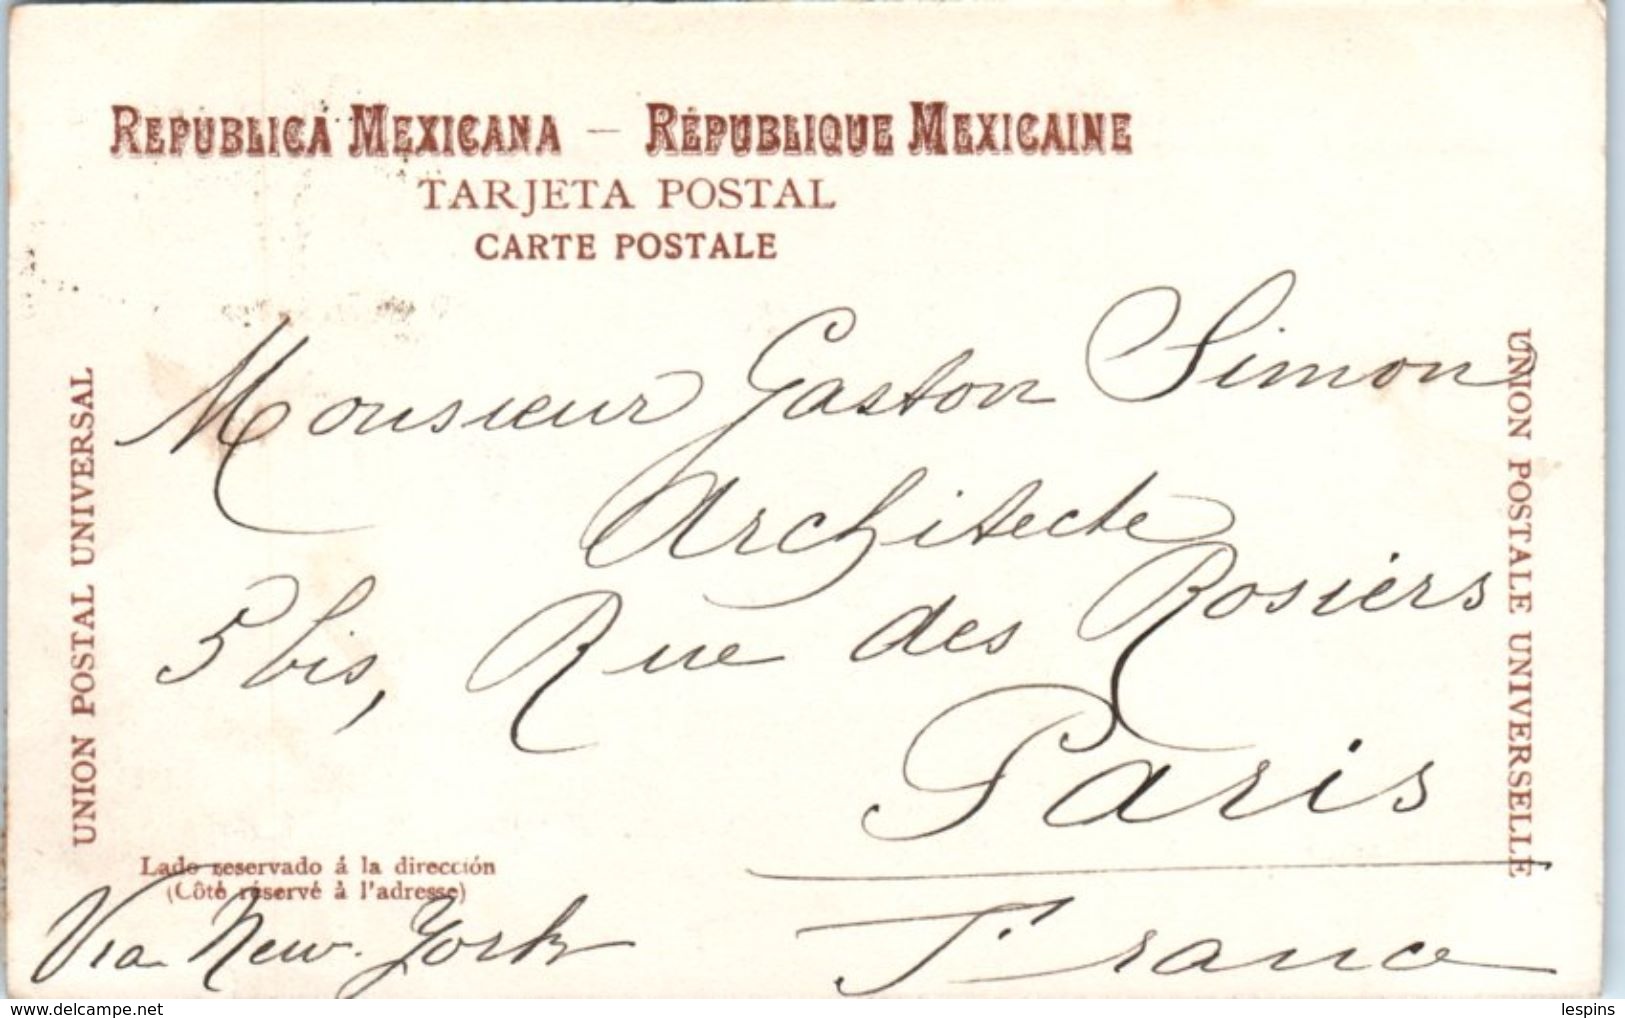 REPUBLICA MEXICANA — RÉPUBLIQUE MEXICAINE
TARJETA POSTAL
CARTE POSTALE
UNION POSTAL UNIVERSAL
UNION POSTALE UNIVERSELLE
Monsieur Gaston Simon
Architecte
5 bis, Rue des Rosiers
Paris
France
Lado reservado á la dirección
(Côté réservé à l'adresse)
Via New-York
lespins